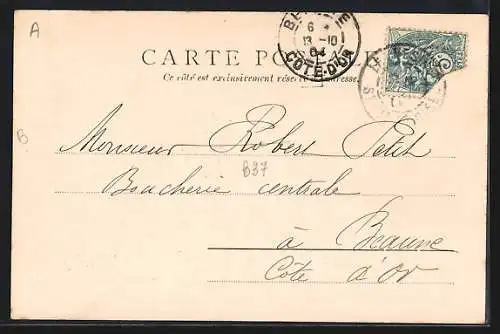 A
CARTE
Ce côté est exclusivement réservé à l'adresse
B
6
13-10
04
COTE-D'OR
Monsieur Robert Petit
B37
Boucherie centrale
à Beaune
Côte d'Or